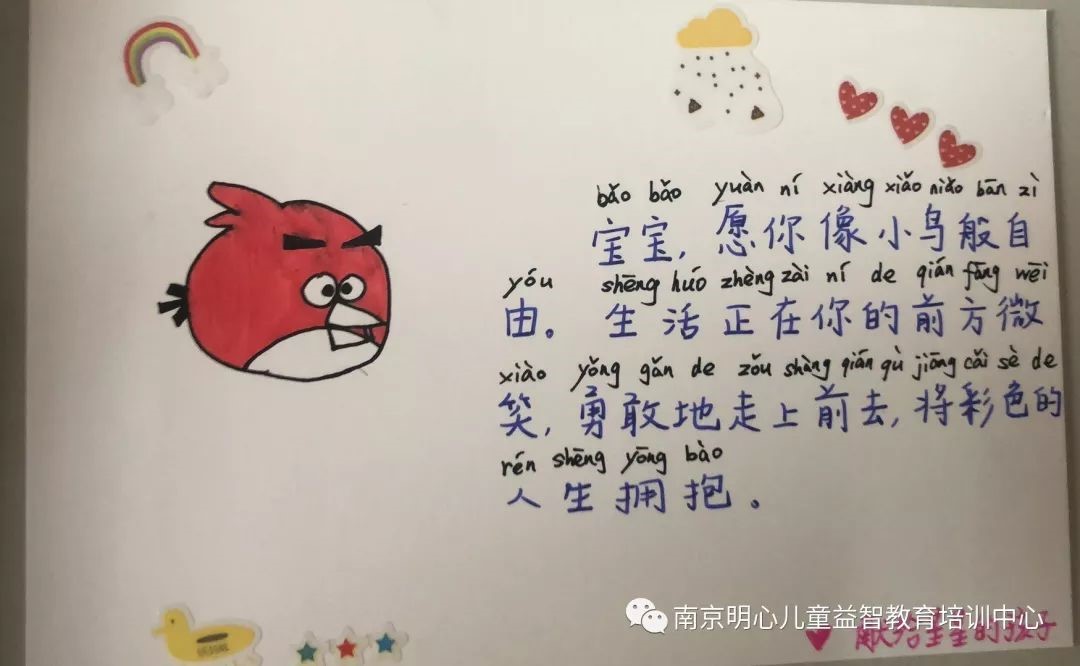 bǎo bǎo yuàn ní xiàng xiǎo niǎo bān zì
宝宝,愿你像小鸟般自
yóu shēng huó zhèng zài ní de qián fāng wēi
由。生活正在你的前方微
xiào yǒng gǎn de zǒu shàng qián qù jiāng cǎi sè de
笑,勇敢地走上前去,将彩色的
rén shēng yōng bào
人生拥抱。
献给星星的孩子
南京明心儿童益智教育培训中心